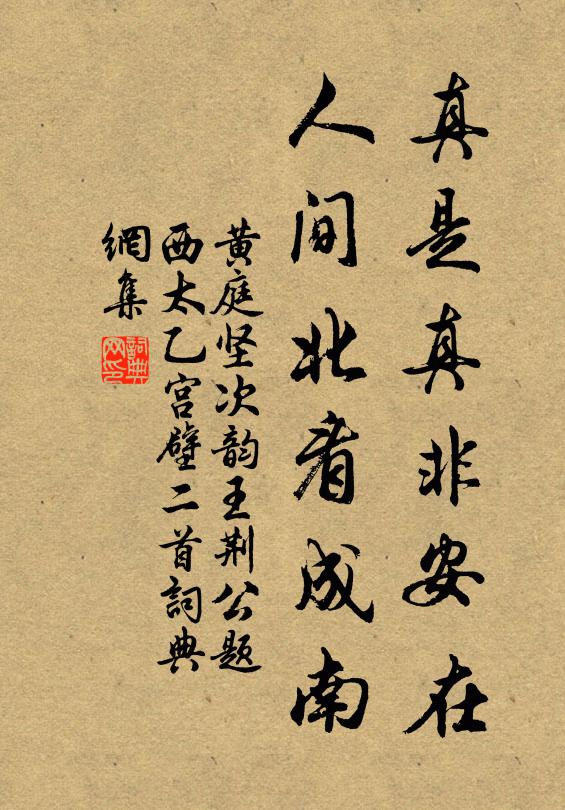 真是真非安在
人间北看成南
黄庭坚次韵王荆公题
西太乙宫壁二首詞典
網集
詞典
网印